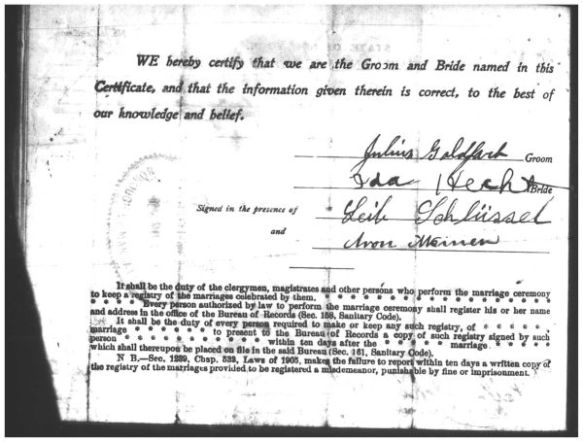 WE hereby certify that we are the Groom and Bride named in this
Certificate, and that the information given therein is correct, to the best of
our knowledge and belief.
Julius Goldfarb Groom
Ida Hecht Bride
Signed in the presence of Leib Schlüssel
and
It shall be the duty of the clergymen, magistrates and other persons who perform the marriage ceremony
to keep a registry of the marriages celebrated by them. * * * * * * * * * * * * * *
* * * * * Every person authorized by law to perform the marriage ceremony shall register his or her name
and address in the office of the Bureau of Records (Sec. 158, Sanitary Code).
It shall be the duty of every person required to make or keep any such registry, of * * * * *
marriage * * * * * to present to the Bureau of Records a copy of such registry signed by such
person * * * * * * * * * * * within ten days after the * * * * * marriage * * * * *
which shall thereupon be placed on file in the said Bureau (Sec. 161, Sanitary Code).
N B.—Sec. 1239, Chap. 533, Laws of 1905, makes the failure to report within ten days a written copy of
the registry of the marriages provided to be registered a misdemeanor, punishable by fine or imprisonment.